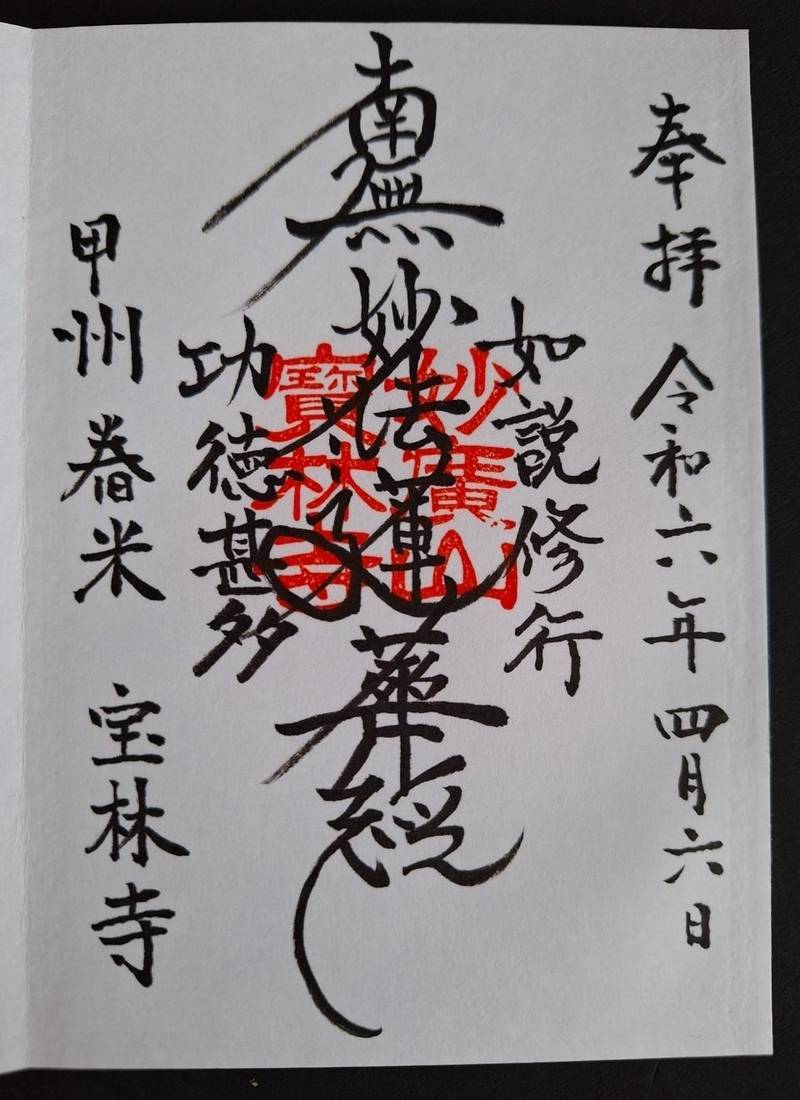 奉拝 令和六年四月六日
如説修行
南無妙法蓮華経
功徳甚多
甲州 舂米 宝林寺
妙廣山
寶林寺